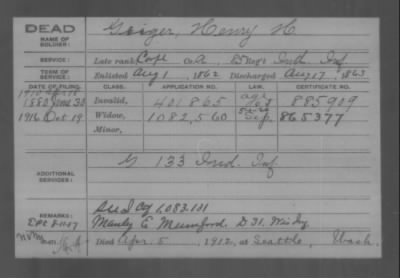 DEAD
NAME OF SOLDIER: Geiger, Henry H.
SERVICE: Late rank Corp Co. A, 85 Reg't Ind Inf
TERM OF SERVICE: Enlisted Aug 1, 1862 Discharged Aug 17, 1863
DATE OF FILING. CLASS. APPLICATION NO. LAW. CERTIFICATE NO.
1880 June 30 Invalid, 401865 885909
1916 Oct 19 Widow, 1082,560 Sep. 865377
Minor,
G 133 Ind. Inf
ADDITIONAL SERVICES:
REMARKS: 1,083,131
Manly E Mumford. D 31.
Died Apr. 5, 1912, at Seattle, Wash.